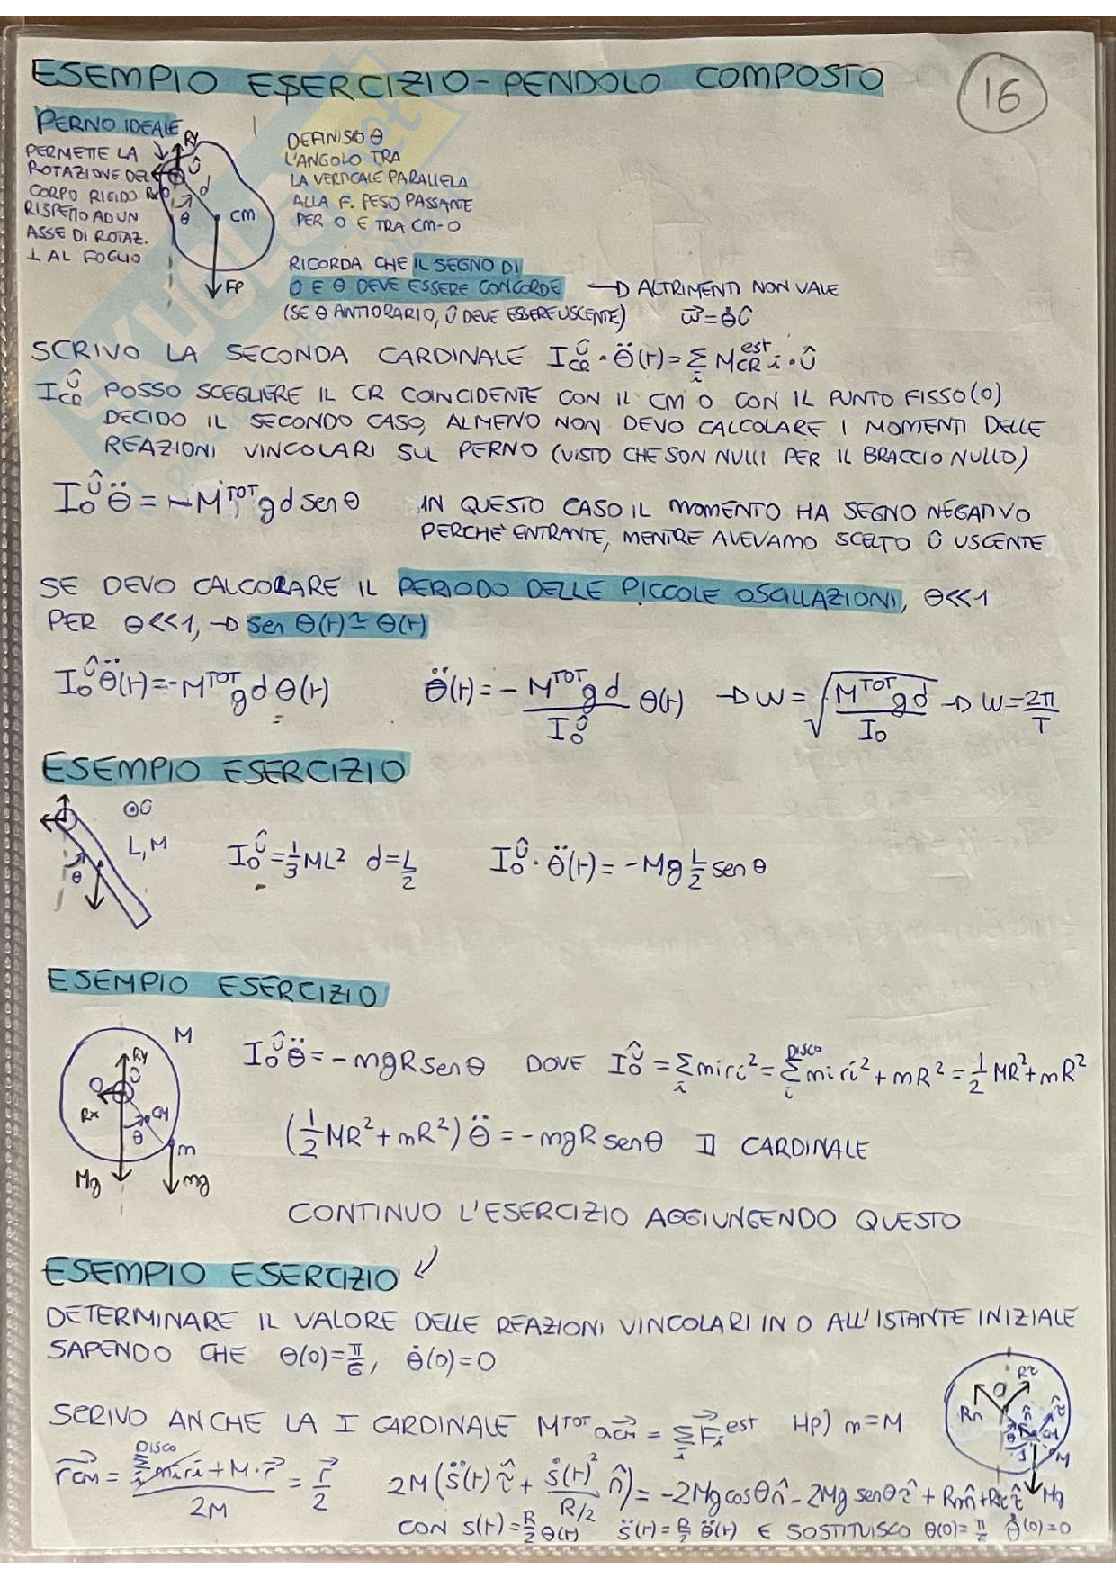 ESEMPIO ESERCIZIO - PENDOLO COMPOSTO
16
PERNO IDEALE
PERMETTE LA
ROTAZIONE DEL
CORPO RIGIDO
RISPETTO AD UN
ASSE DI ROTAZ.
⊥ AL FOGLIO
Ry
Û
Rx
O
d
θ
CM
FP
DEFINISCO θ
L'ANGOLO TRA
LA VERTICALE PARALLELA
ALLA F. PESO PASSANTE
PER O E TRA CM-O
RICORDA CHE IL SEGNO DI
Û E θ DEVE ESSERE CONCORDE → ALTRIMENTI NON VALE
(SE θ ANTIORARIO, Û DEVE ESSERE USCENTE) ω⃗=θ̇Û
SCRIVO LA SECONDA CARDINALE I_CR^Û · θ̈(t)=Σ_i M_CR^est i · Û
I_CR^Û POSSO SCEGLIERE IL CR COINCIDENTE CON IL CM O CON IL PUNTO FISSO (O)
DECIDO IL SECONDO CASO, ALMENO NON DEVO CALCOLARE I MOMENTI DELLE
REAZIONI VINCOLARI SUL PERNO (VISTO CHE SON NULLI PER IL BRACCIO NULLO)
I_O^Û θ̈ = -M^TOT g d sen θ IN QUESTO CASO IL MOMENTO HA SEGNO NEGATIVO
PERCHÈ ENTRANTE, MENTRE AVEVAMO SCELTO Û USCENTE
SE DEVO CALCOLARE IL PERIODO DELLE PICCOLE OSCILLAZIONI, θ<<1
PER θ<<1, → sen θ(t) ≃ θ(t)
I_O^Û θ̈(t) = -M^TOT g d θ(t) θ̈(t) = - M^TOT g d / I_O^Û θ(t) → ω = √(M^TOT g d / I_O) → ω = 2π/T
ESEMPIO ESERCIZIO
⊙Û
L, M
θ
I_O^Û = 1/3 ML² d = L/2 I_O^Û · θ̈(t) = -Mg L/2 sen θ
ESEMPIO ESERCIZIO
M
Ry
O
Û
Rx
CM
θ
m
Mg
mg
I_O^Û θ̈ = -mgR sen θ DOVE I_O^Û = Σ_i miri² = Σ_i^DISCO miri² + mR² = 1/2 MR² + mR²
(1/2 MR² + mR²) θ̈ = -mgR sen θ II CARDINALE
CONTINUO L'ESERCIZIO AGGIUNGENDO QUESTO
ESEMPIO ESERCIZIO
DETERMINARE IL VALORE DELLE REAZIONI VINCOLARI IN O ALL'ISTANTE INIZIALE
SAPENDO CHE θ(0) = π/6, θ̇(0) = 0
Rn
O
Rτ
n̂
τ̂
θ
CM
M
Mg
SCRIVO ANCHE LA I CARDINALE M^TOT a⃗cm = Σ_i F⃗i^est Hp) m = M
r⃗cm = (Σ_i^DISCO miri + M · r⃗) / 2M = r⃗/2 2M (s̈(t) τ̂ + ṡ(t)² / R/2 n̂) = -2Mg cos θ n̂ - 2Mg sen θ τ̂ + Rn n̂ + Rτ τ̂
CON s(t) = R/2 θ(t) s̈(t) = R/2 θ̈(t) E SOSTITUISCO θ(0) = π/6 θ̇(0) = 0